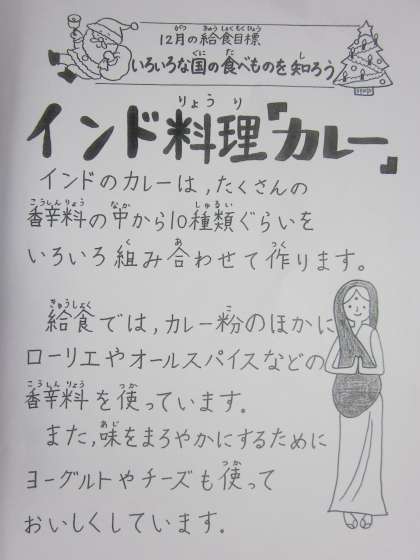 12月の給食目標
いろいろな国の食べものを知ろう
インド料理「カレー」
インドのカレーは,たくさんの
香辛料の中から10種類ぐらいを
いろいろ組み合わせて作ります。
給食では,カレー粉のほかに
ローリエやオールスパイスなどの
香辛料を使っています。
また,味をまろやかにするために
ヨーグルトやチーズも使って
おいしくしています。